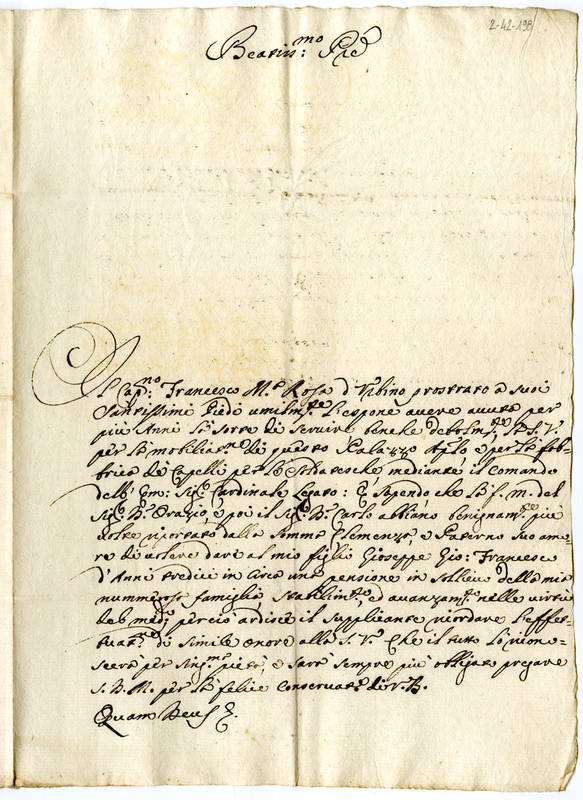 2-42-198
Beatiss:mo Pre
Il Cap:no Francesco M.a Rosa d'Urbino prostrato a suoi
Santissimi Piedi umilm.te L'espone avere avuto per
più Anni la sorte di servire benche debolm.te V. S.tà
per la mobiliar.ne di questo Palazzo Ap.lo e per la fab-
brica de Capelli per le Soldatesche mediante il Comando
dell' Em: Sig.r Cardinale Legato: E sapendo che la f. m. del
Sig.r D. Orazio, e poi il Sig.r D. Carlo abbiano benignam.te più
volte riportato dalla Somma Clemenza, e Paterno suo amo-
re di volere dare al mio figlio Gioseppe Gio: Francesco
d'Anni tredici in circa una pensione in sollievo della mia
nummerosa famiglia, Stabilim.to, ed avanzam.to nelle virtù
del med.o perciò ardisce il supplicante ricordare l'effet-
tuat.ne di simile onore alla S. V. Che il tutto lo ricono-
scerà per sing.ma pietà, e sarà sempre più obligato pregare
S. D. M. per la felice conservat.ne di V. B.
Quam Deus &.